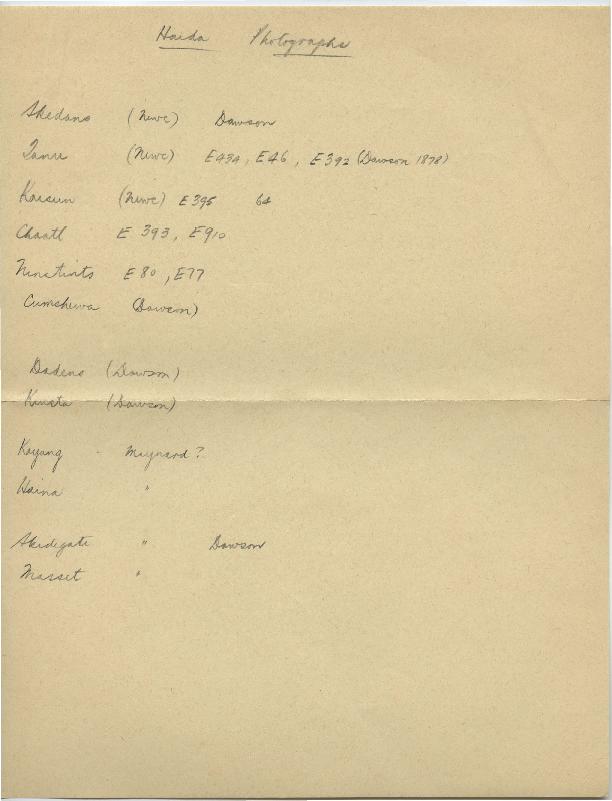 Haida Photographs
Skedans (Newc) Dawson
Tanu (Newc) E434, E46, E392 (Dawson 1878)
Kaisun (Newc) E395 64
Chaatl E 393, E910
Ninstints E80, E77
Cumshewa (Dawson)
Dadens (Dawson)
Kiusta (Dawson)
Kayang - Maynard?
Haina "
Skidegate " Dawson
Masset "